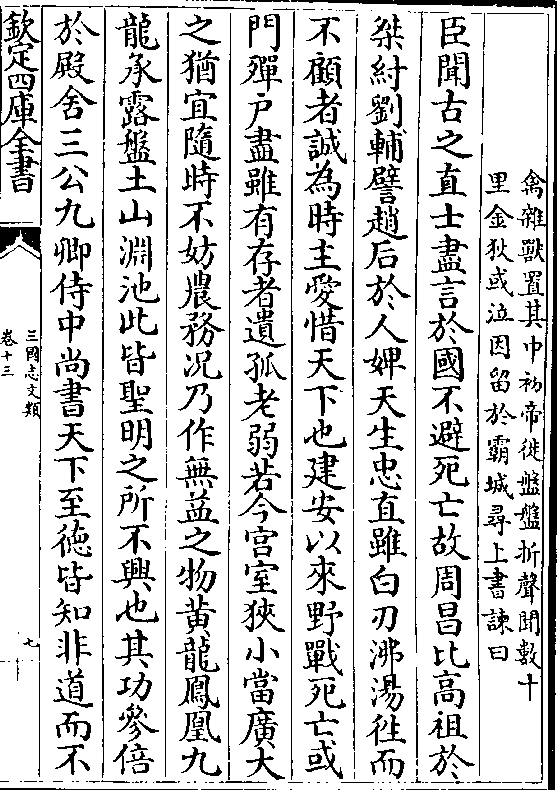 禽雜獸置其中初帝徙盤盤折聲聞數十
里金狄或泣因留於霸城尋上書諫曰
臣聞古之直士盡言於國不避死亡故周昌比髙祖於
桀紂劉輔譬趙后於人婢天生忠直雖白刃沸湯徃而
不顧者誠為時主愛惜天下也建安以來野戰死亡或
門殫户盡雖有存者遺孤老弱若今宫室狹小當廣大
之猶宜隨時不妨農務况乃作無益之物黄龍鳳凰九
龍承露盤土山淵池此皆聖明之所不興也其功參倍
於殿舍三公九卿侍中尚書天下至徳皆知非道而不
欽定四庫全書
三國志文類
卷十三
七